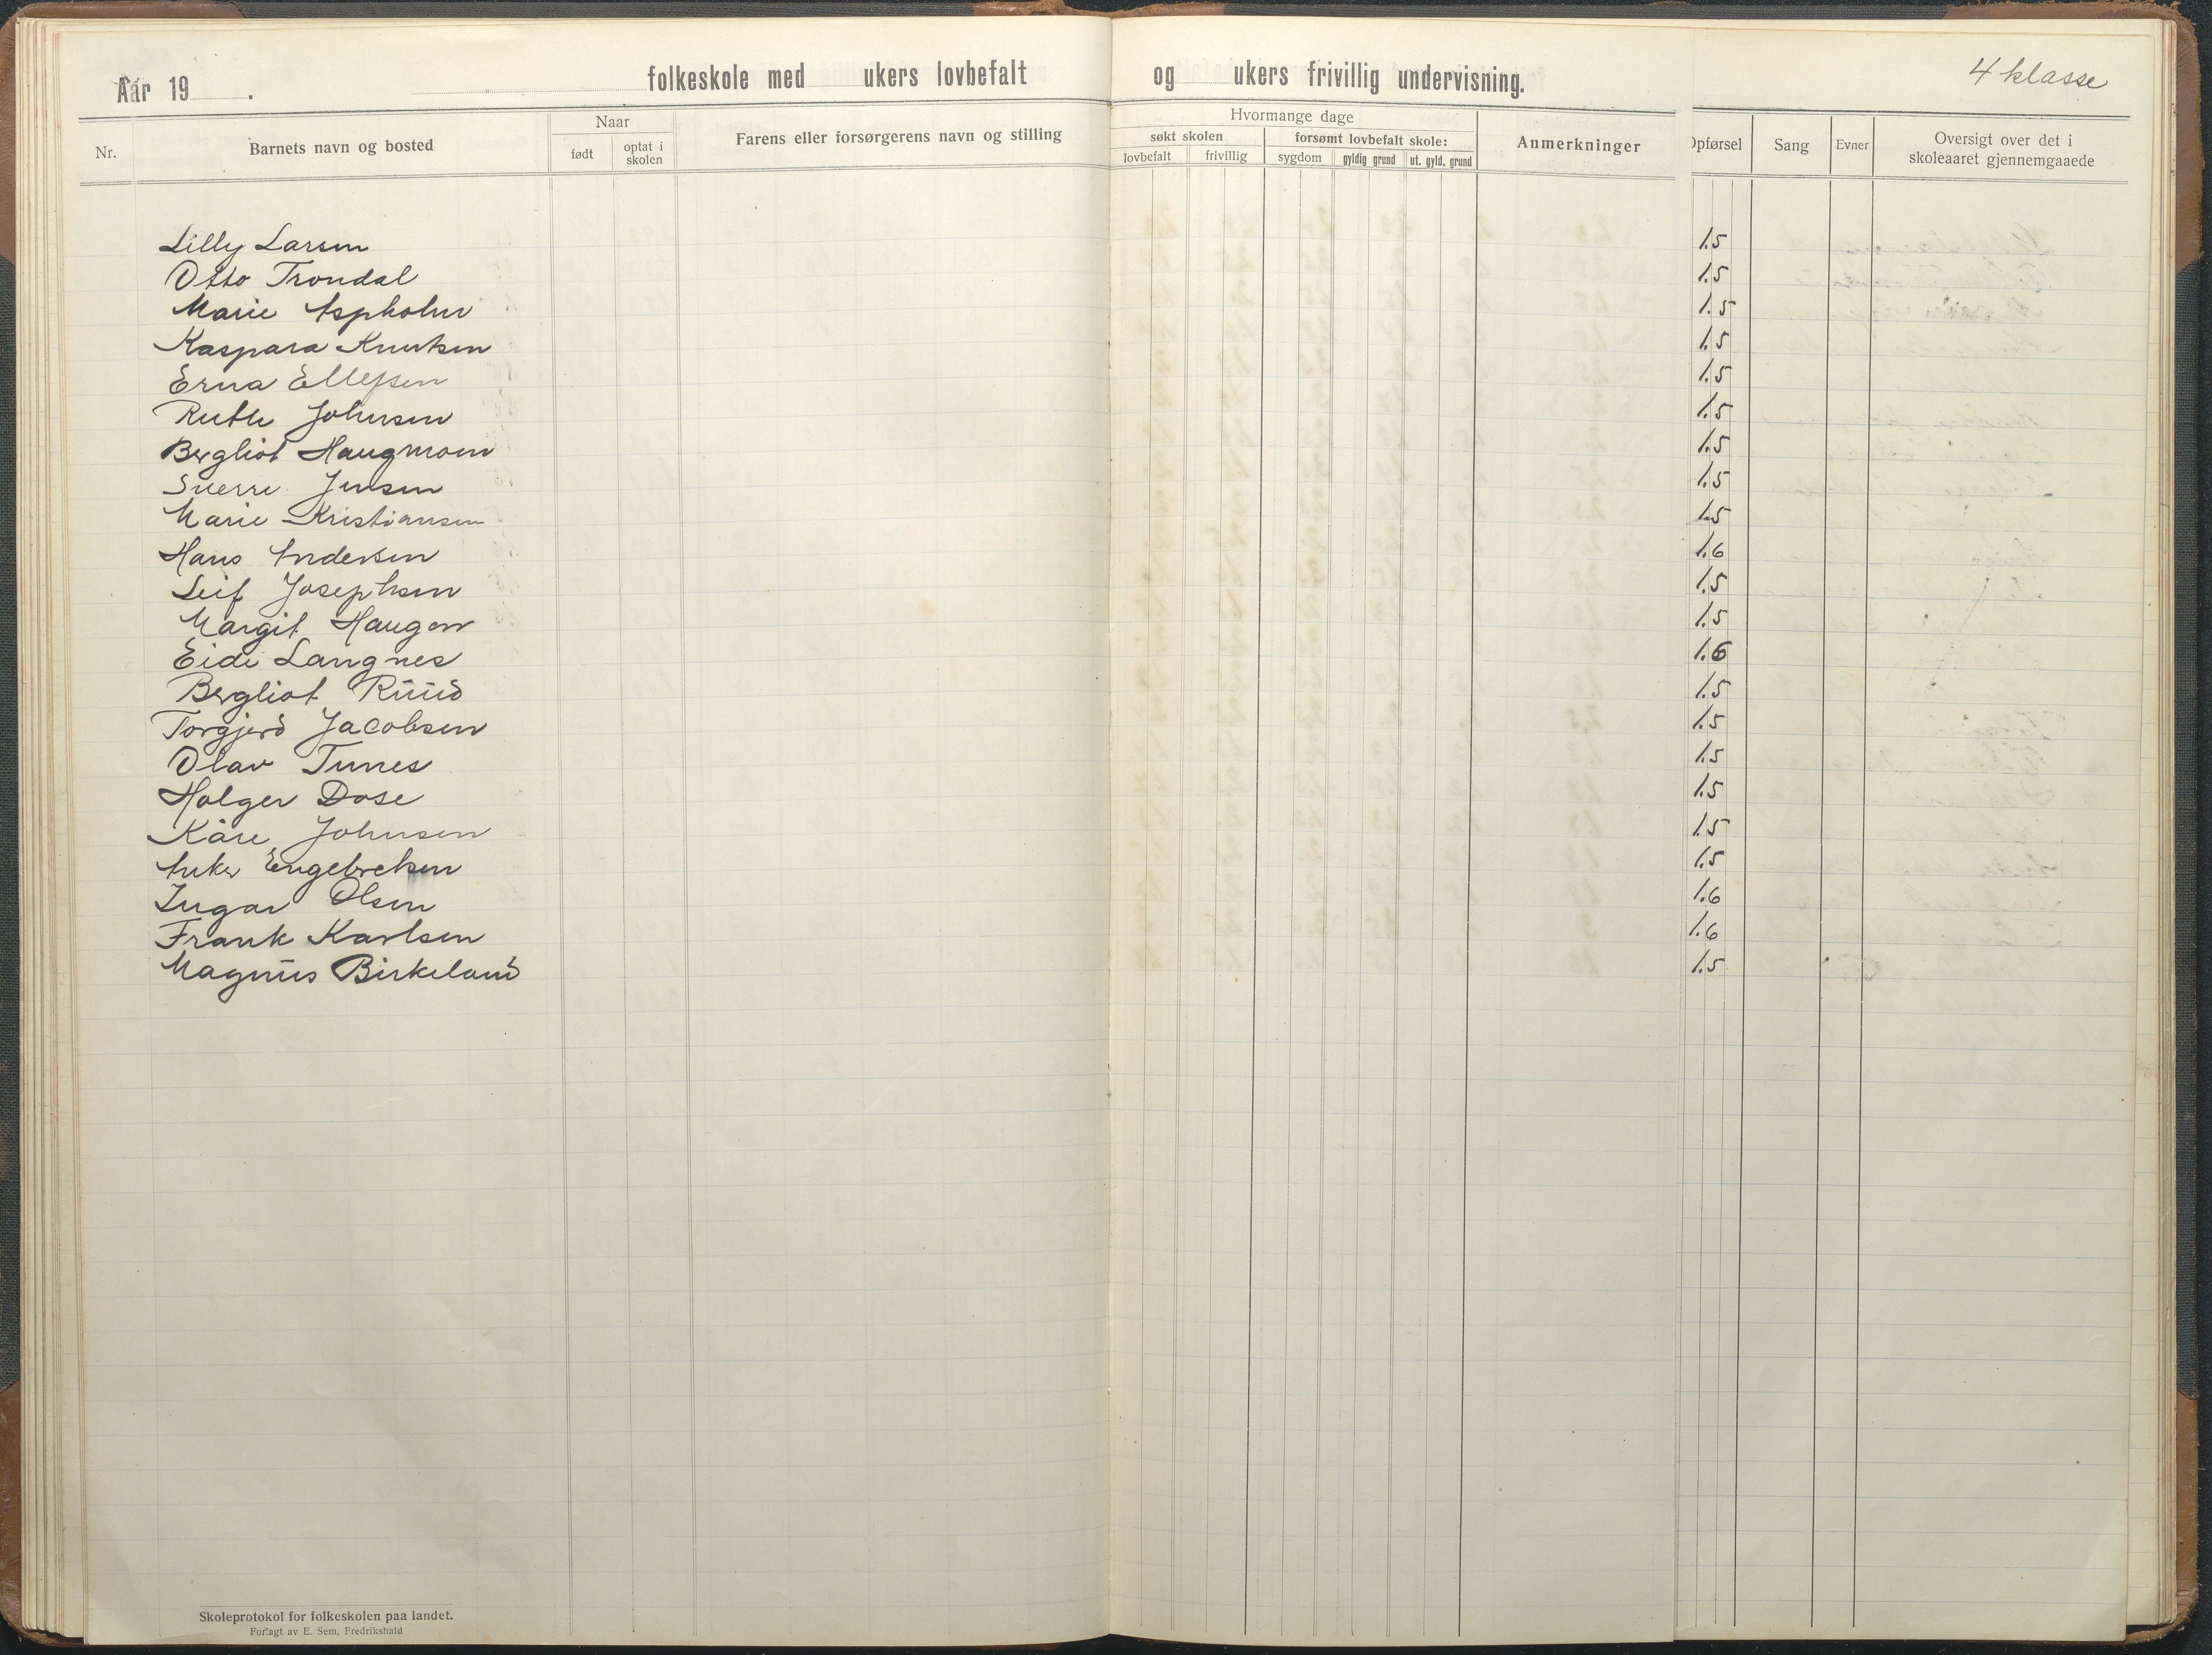 Aar 19 . folkeskole med ukers lovbefalt og ukers frivillig undervisning.
4 klasse
Nr. Barnets navn og bosted Naar født optat i skolen Farens eller forsørgerens navn og stilling Hvormange dage søkt skolen lovbefalt frivillig forsømt lovbefalt skole: sygdom gyldig grund ut. gyld. grund Anmerkninger Opførsel Sang Evner Oversigt over det i skoleaaret gjennemgaaede
Lilly Larsen 1.5
Otto Trondal 1.5
Marie Aspholm 1.5
Kaspara Knutsen 1.5
Erna Ellefsen 1.5
Ruth Johnsen 1.5
Bergliot Haugmoen 1.5
Sverre Jensen 1.5
Marie Kristiansen 1.5
Hans Andersen 1.6
Leif Josephsen 1.5
Margit Haugen 1.5
Eide Langnes 1.6
Bergliot Ruud 1.5
Torgjerd Jacobsen 1.5
Olav Tunes 1.5
Holger Dose 1.5
Kåre Johnsen 1.5
Anker Engebretsen 1.5
Ingar Olsen 1.6
Frank Karlsen 1.6
Magnus Birkeland 1.5
Skoleprotokol for folkeskolen paa landet.
Forlagt av E. Sem, Fredrikshald